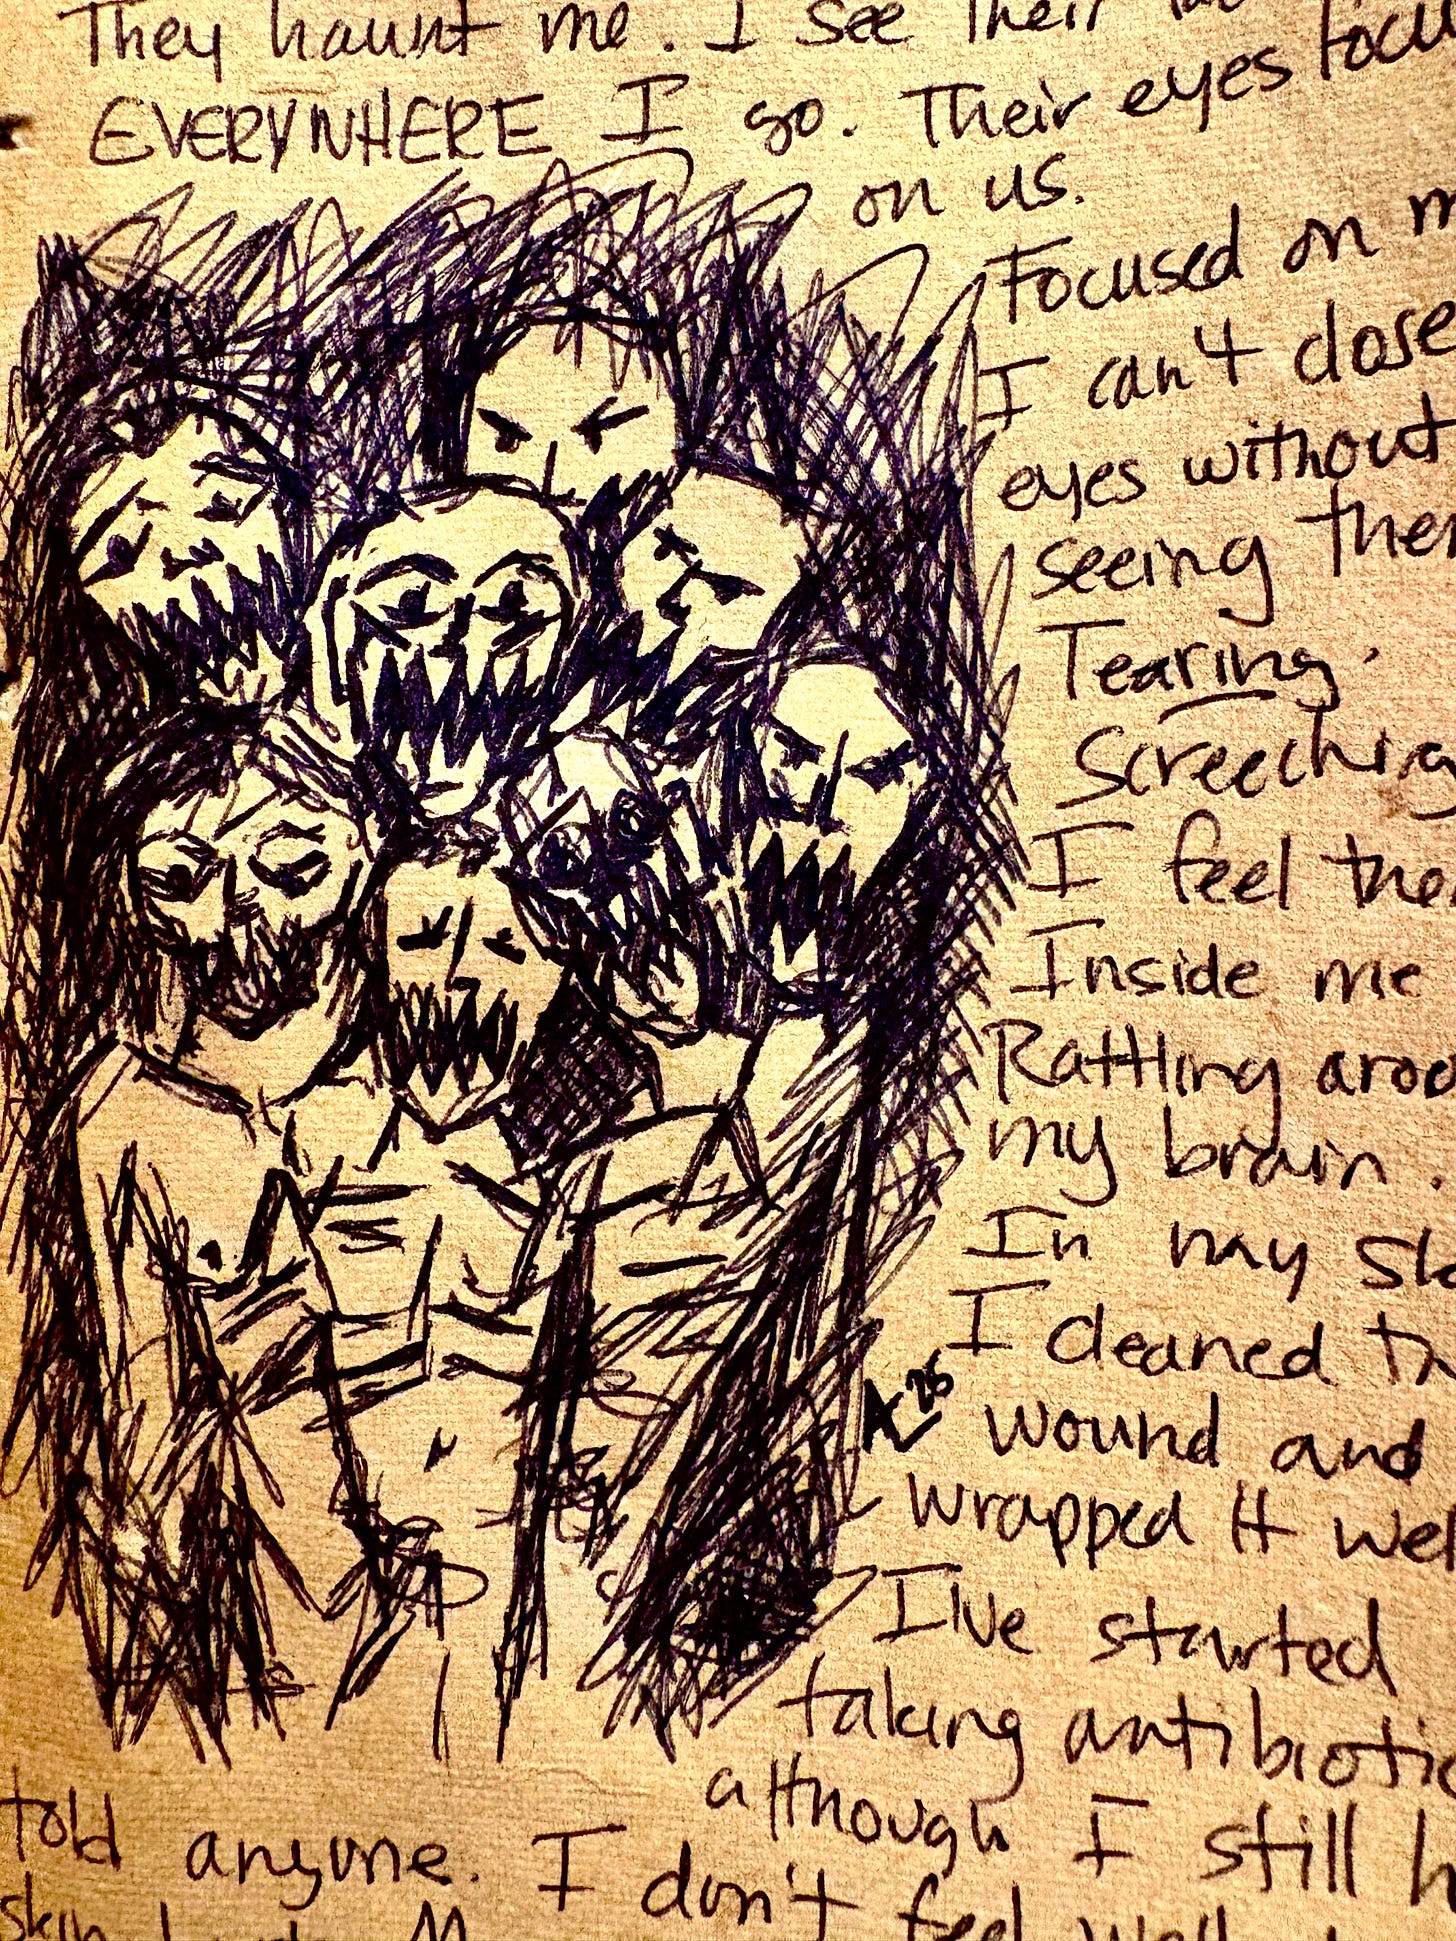 They haunt me. I see Their
EVERYWHERE I go. Their eyes
on us.
Focused on
I can't close
eyes without
seeing
Tearing.
Screeching
I feel
Inside me
Rattling
my brain.
In my
I cleaned
wound and
wrapped it
I've started
taking
although I still
told anyone. I don't feel well
skin